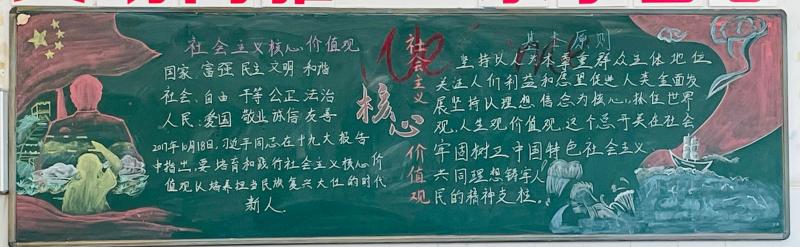 社会主义核心价值观
国家 富强 民主 文明 和谐
社会、自由 平等 公正 法治
人民：爱国 敬业 诚信 友善
2017年10月18日,习近平同志在十九大报告
中指出,要培育和践行社会主义核心价
值观以培养担当民族复兴大任的时代
新人.
社会主义
核心
价值观
基本原则
坚持以人为本尊重群众主体地位
关注人们利益和愿望促进人类全面发
展坚持以理想信念为核心,抓住世界
观,人生观,价值观,这个总开关在社会
牢固树立中国特色社会主义
共同理想铸牢人
民的精神支柱。